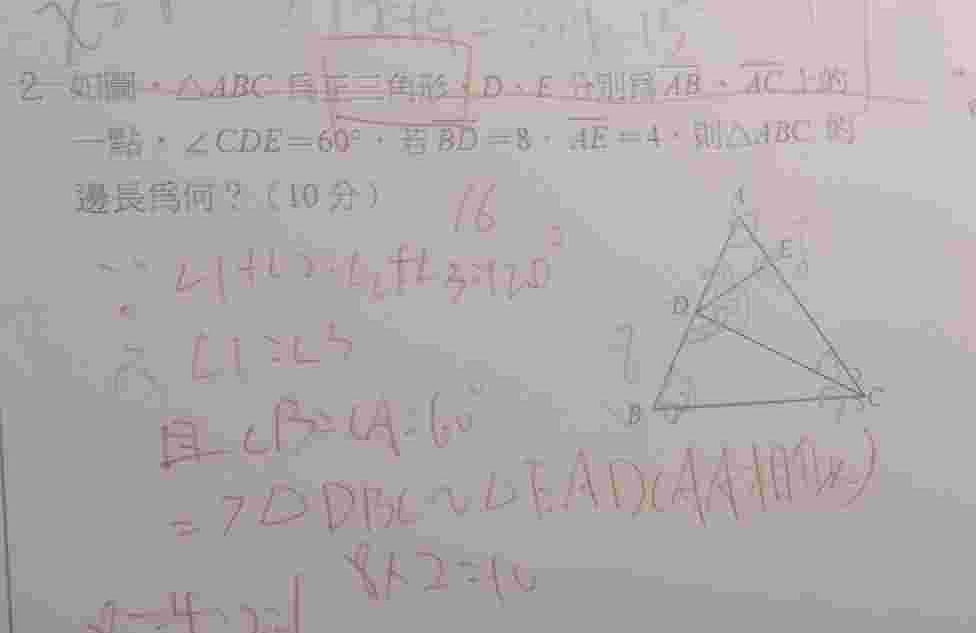 2 如圖，△ABC 為正三角形，D、E 分別為 AB、AC 上的
一點，∠CDE=60°，若 BD=8，AE=4，則△ABC 的
邊長為何？（10 分）
16
∵ ∠1+∠2=∠2+∠3=120°
∴ ∠1=∠3
且∠B=∠A=60°
=>△DBC~△EAD(AA相似)
8×2=16
A
E
D
B
C